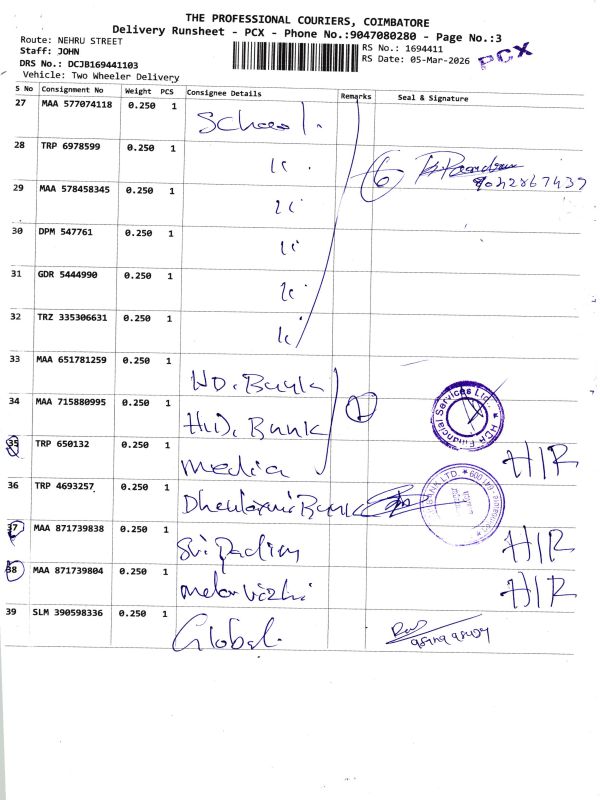 THE PROFESSIONAL COURIERS, COIMBATORE
Delivery Runsheet - PCX - Phone No.:9047080280 - Page No.:3
Route: NEHRU STREET
RS No.: 1694411
Staff: JOHN
RS Date: 05-Mar-2026
PCX
DRS No.: DCJB169441103
Vehicle: Two Wheeler Delivery
S No Consignment No Weight PCS Consignee Details Remarks Seal & Signature
27 MAA 577074118 0.250 1 School.
28 TRP 6978599 0.250 1 6
29 MAA 578458345 0.250 1
30 DPM 547761 0.250 1
31 GDR 5444990 0.250 1
32 TRZ 335306631 0.250 1
33 MAA 651781259 0.250 1 HD. Bank
34 MAA 715880995 0.250 1 Hd. Bank 1
Financial Services Ltd.
35 TRP 650132 0.250 1 media H/R
36 TRP 4693257 0.250 1 Bank
BANK LTD.
37 MAA 871739838 0.250 1 H/R
38 MAA 871739804 0.250 1 H/R
39 SLM 390598336 0.250 1 Global.